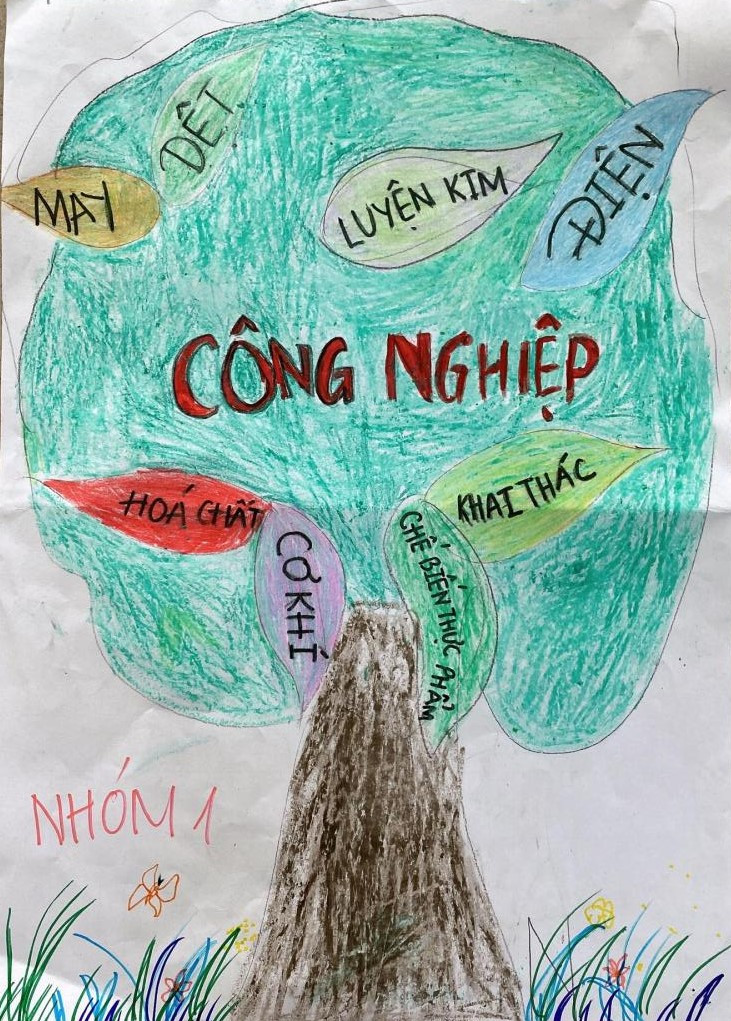 DỆT
MAY
LUYỆN KIM
ĐIỆN
CÔNG NGHIỆP
HOÁ CHẤT
CƠ KHÍ
CHẾ BIẾN THỰC PHẨM
KHAI THÁC
NHÓM 1